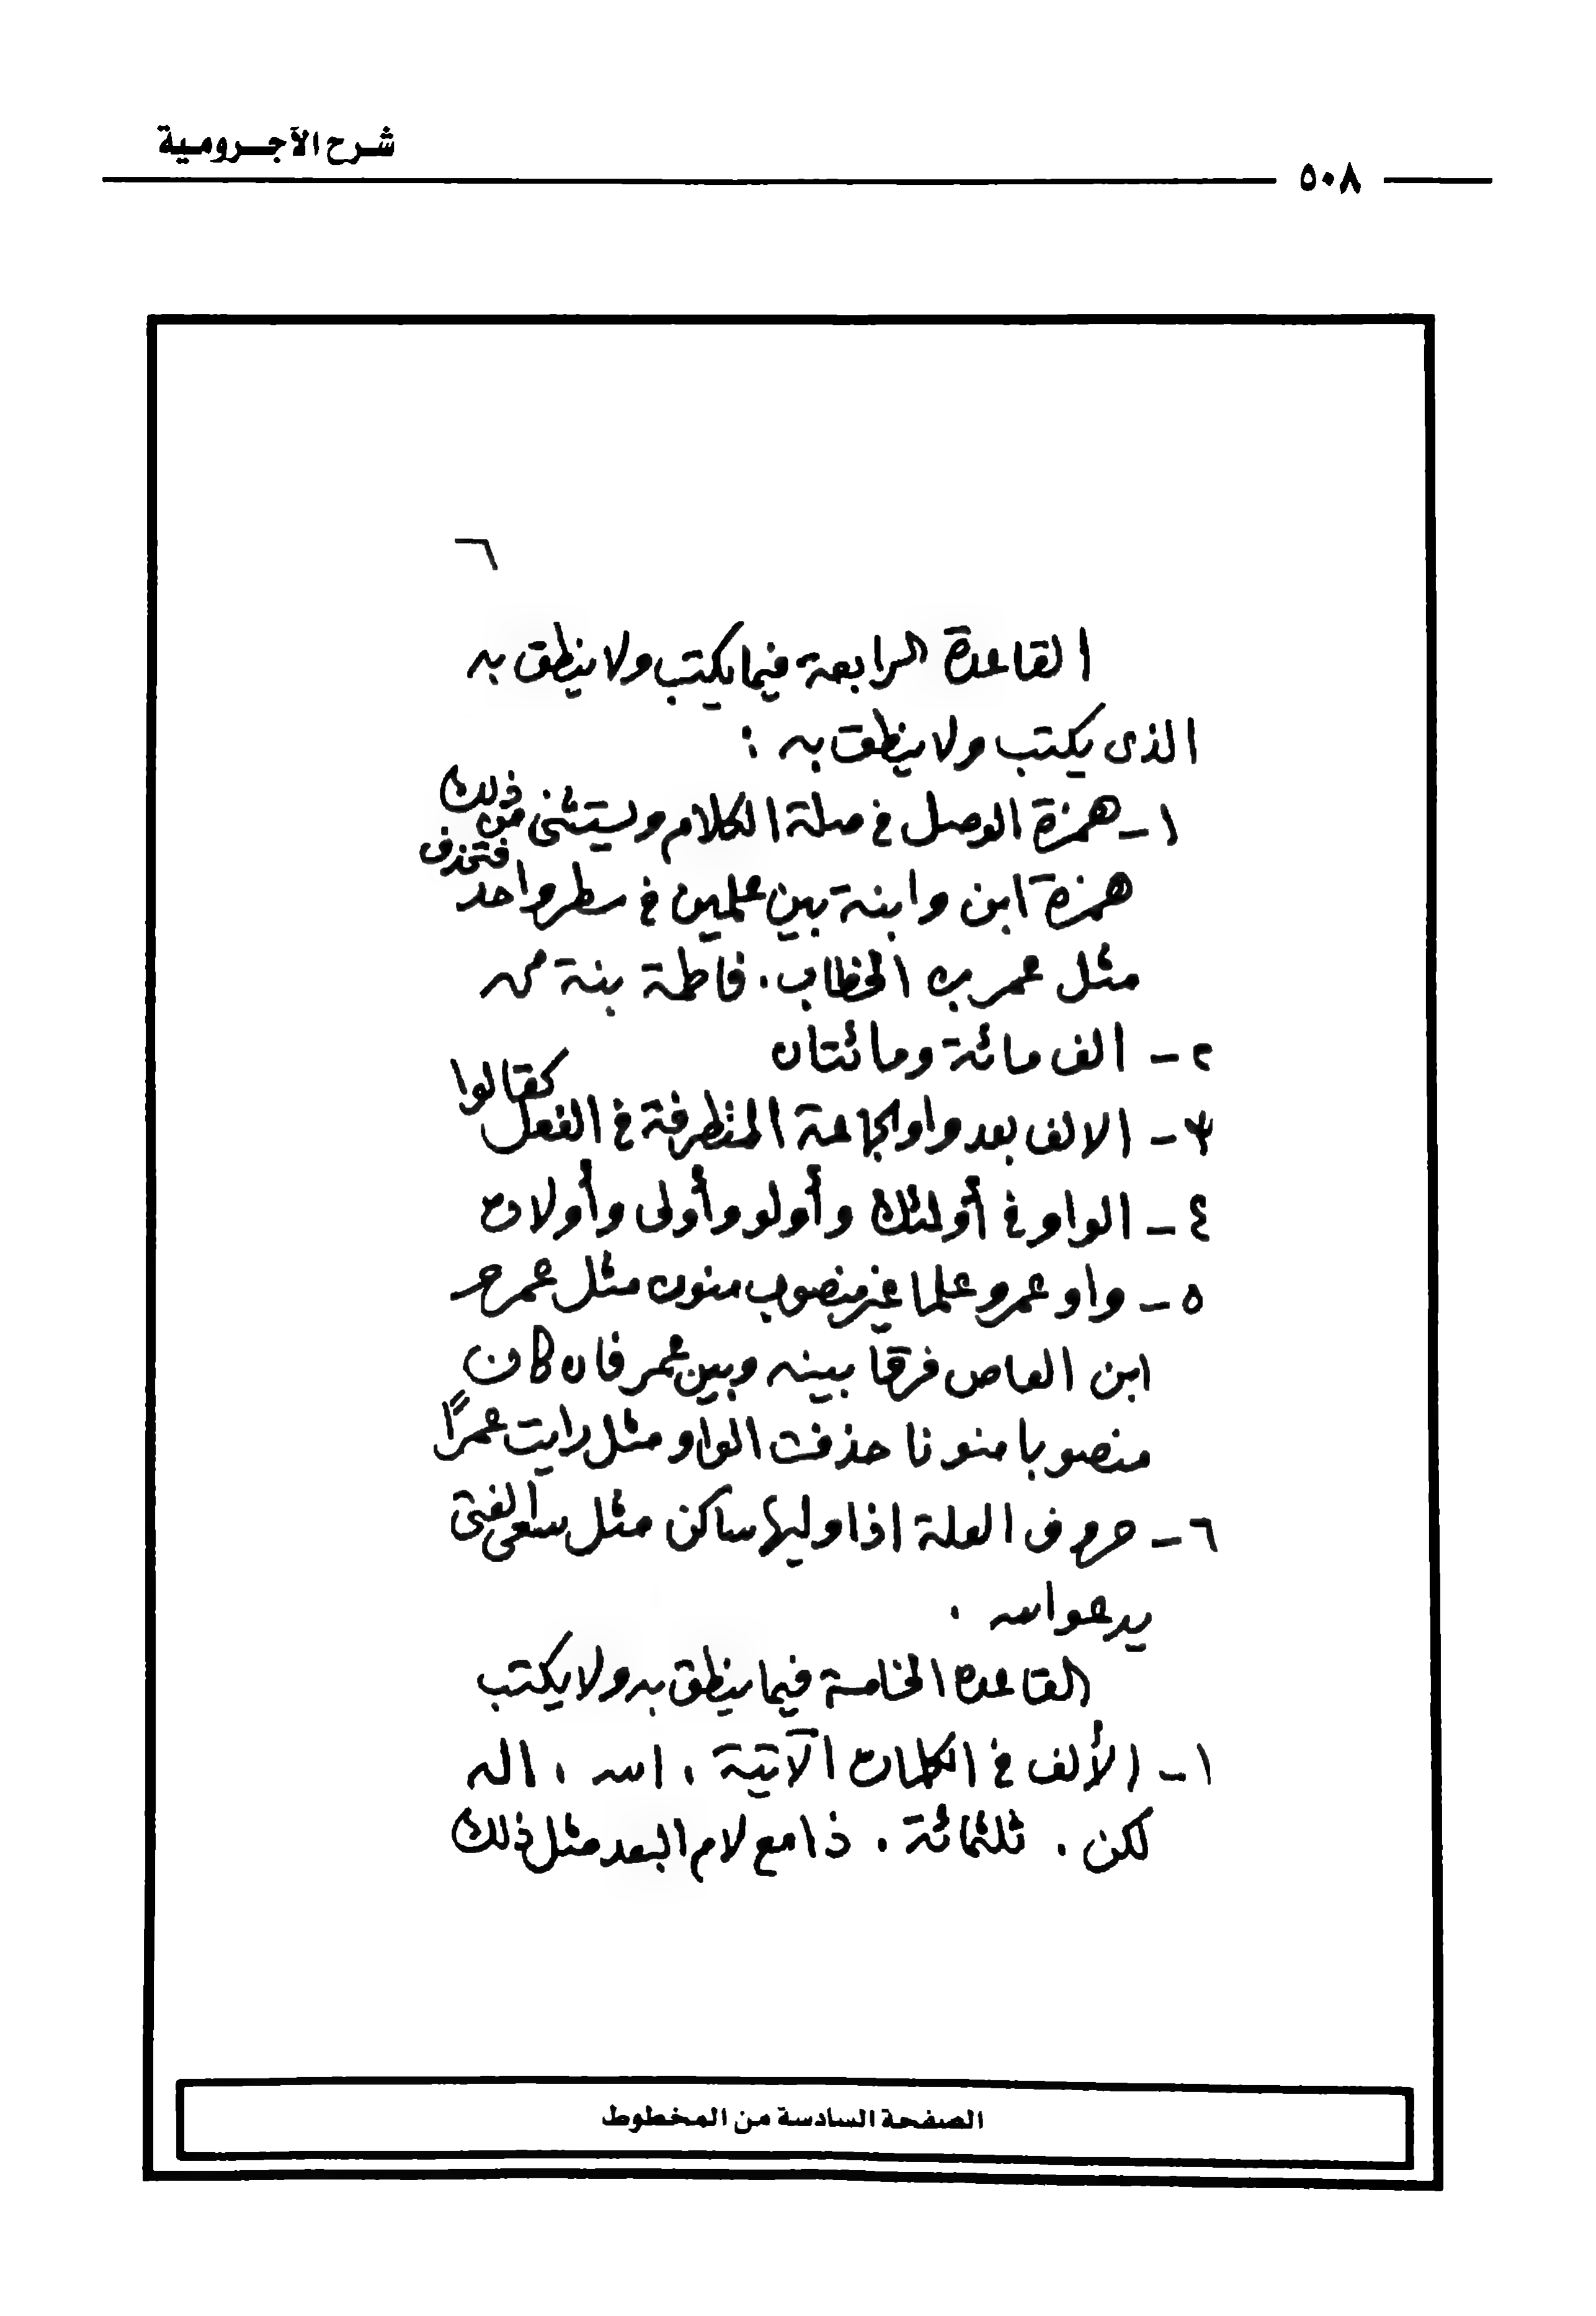 شرح الآجرومية
٥٠٨
٦
القاعدة الرابعة فيما يكتب ولا ينطق به
الذى يكتب ولا ينطق به :
١ - همزة الوصل في صلة الكلام ويستثنى من ذلك
همزة ابن وابنة بين علمين في سطر واحد فتحذف
مثل عمر بن الخطاب . فاطمة بنة محمد
٢ - الف مائة ومائتان
٣ - الالف بعد واو الجماعة المتطرفة في الفعل كقالوا
٤ - الواو في أولئك وأولو وأولى وأولات
٥ - واو عمرو علما غير منصوب منون مثل عمرو
ابن العاص فرقا بينه وبين عمر فان كان
منصوبا منونا حذفت الواو مثل رايت عمرًا
٦ - حروف العلة اذا وليها ساكن مثل سعى الفتى
يدعو الله .
القاعدة الخامسة فيما ينطق به ولا يكتب
١ - الألف في الكلمات الآتية ، الله ، اله
لكن . ثلثمائة . ذا مع لام البعد مثل ذلك
الصفحة السادسة من المخطوط